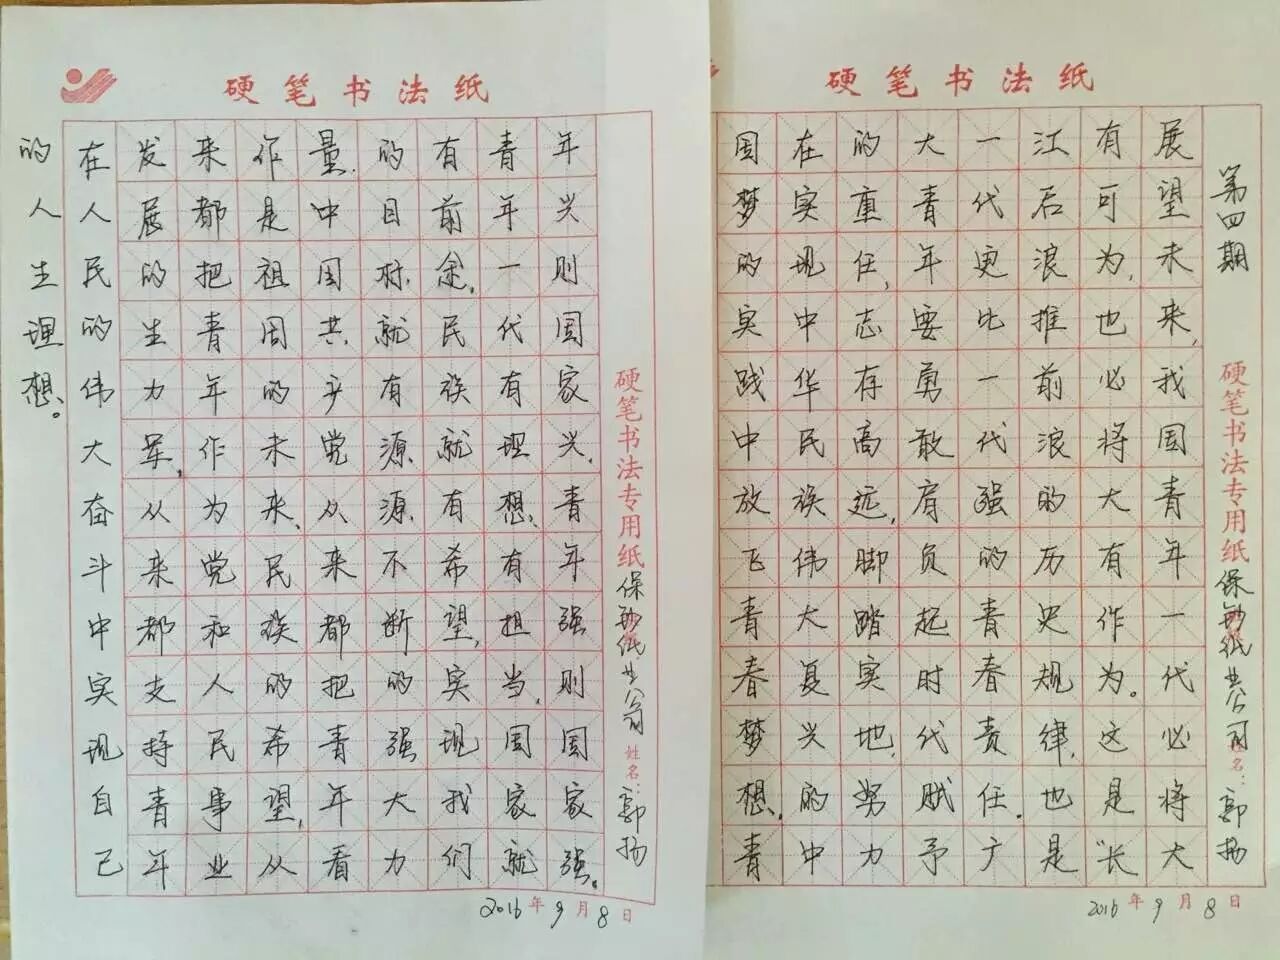 硬笔书法纸
第四期
硬笔书法专用纸
保钞纸业公司
姓名：郭扬
展望未来,我国青年一代必将大
有可为,也必将大有作为。这是“长
江后浪推前浪的历史规律,也是
一代更比一代强的青春责任.广
大青年要勇敢肩负起时代赋予
的重任,志存高远,脚踏实地,努力
在实现中华民族伟大复兴的中
国梦的实践中放飞青春梦想.青
2016年9月8日
硬笔书法纸
硬笔书法专用纸
保钞纸业公司
姓名：郭扬
年兴则国家兴,青年强则国家强。
青年一代有理想、有担当,国家就
有前途,民族就有希望,实现我们
的目标就有源源不断的强大力
量.中国共产党从来都把青年看
作是祖国的未来、民族的希望,从
来都把青年作为党和人民事业
发展的生力军,从来都支持青年
在人民的伟大奋斗中实现自己
的人生理想。
2016年9月8日